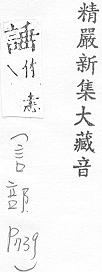 精嚴新集大藏音
竹恚
(言部 P739)